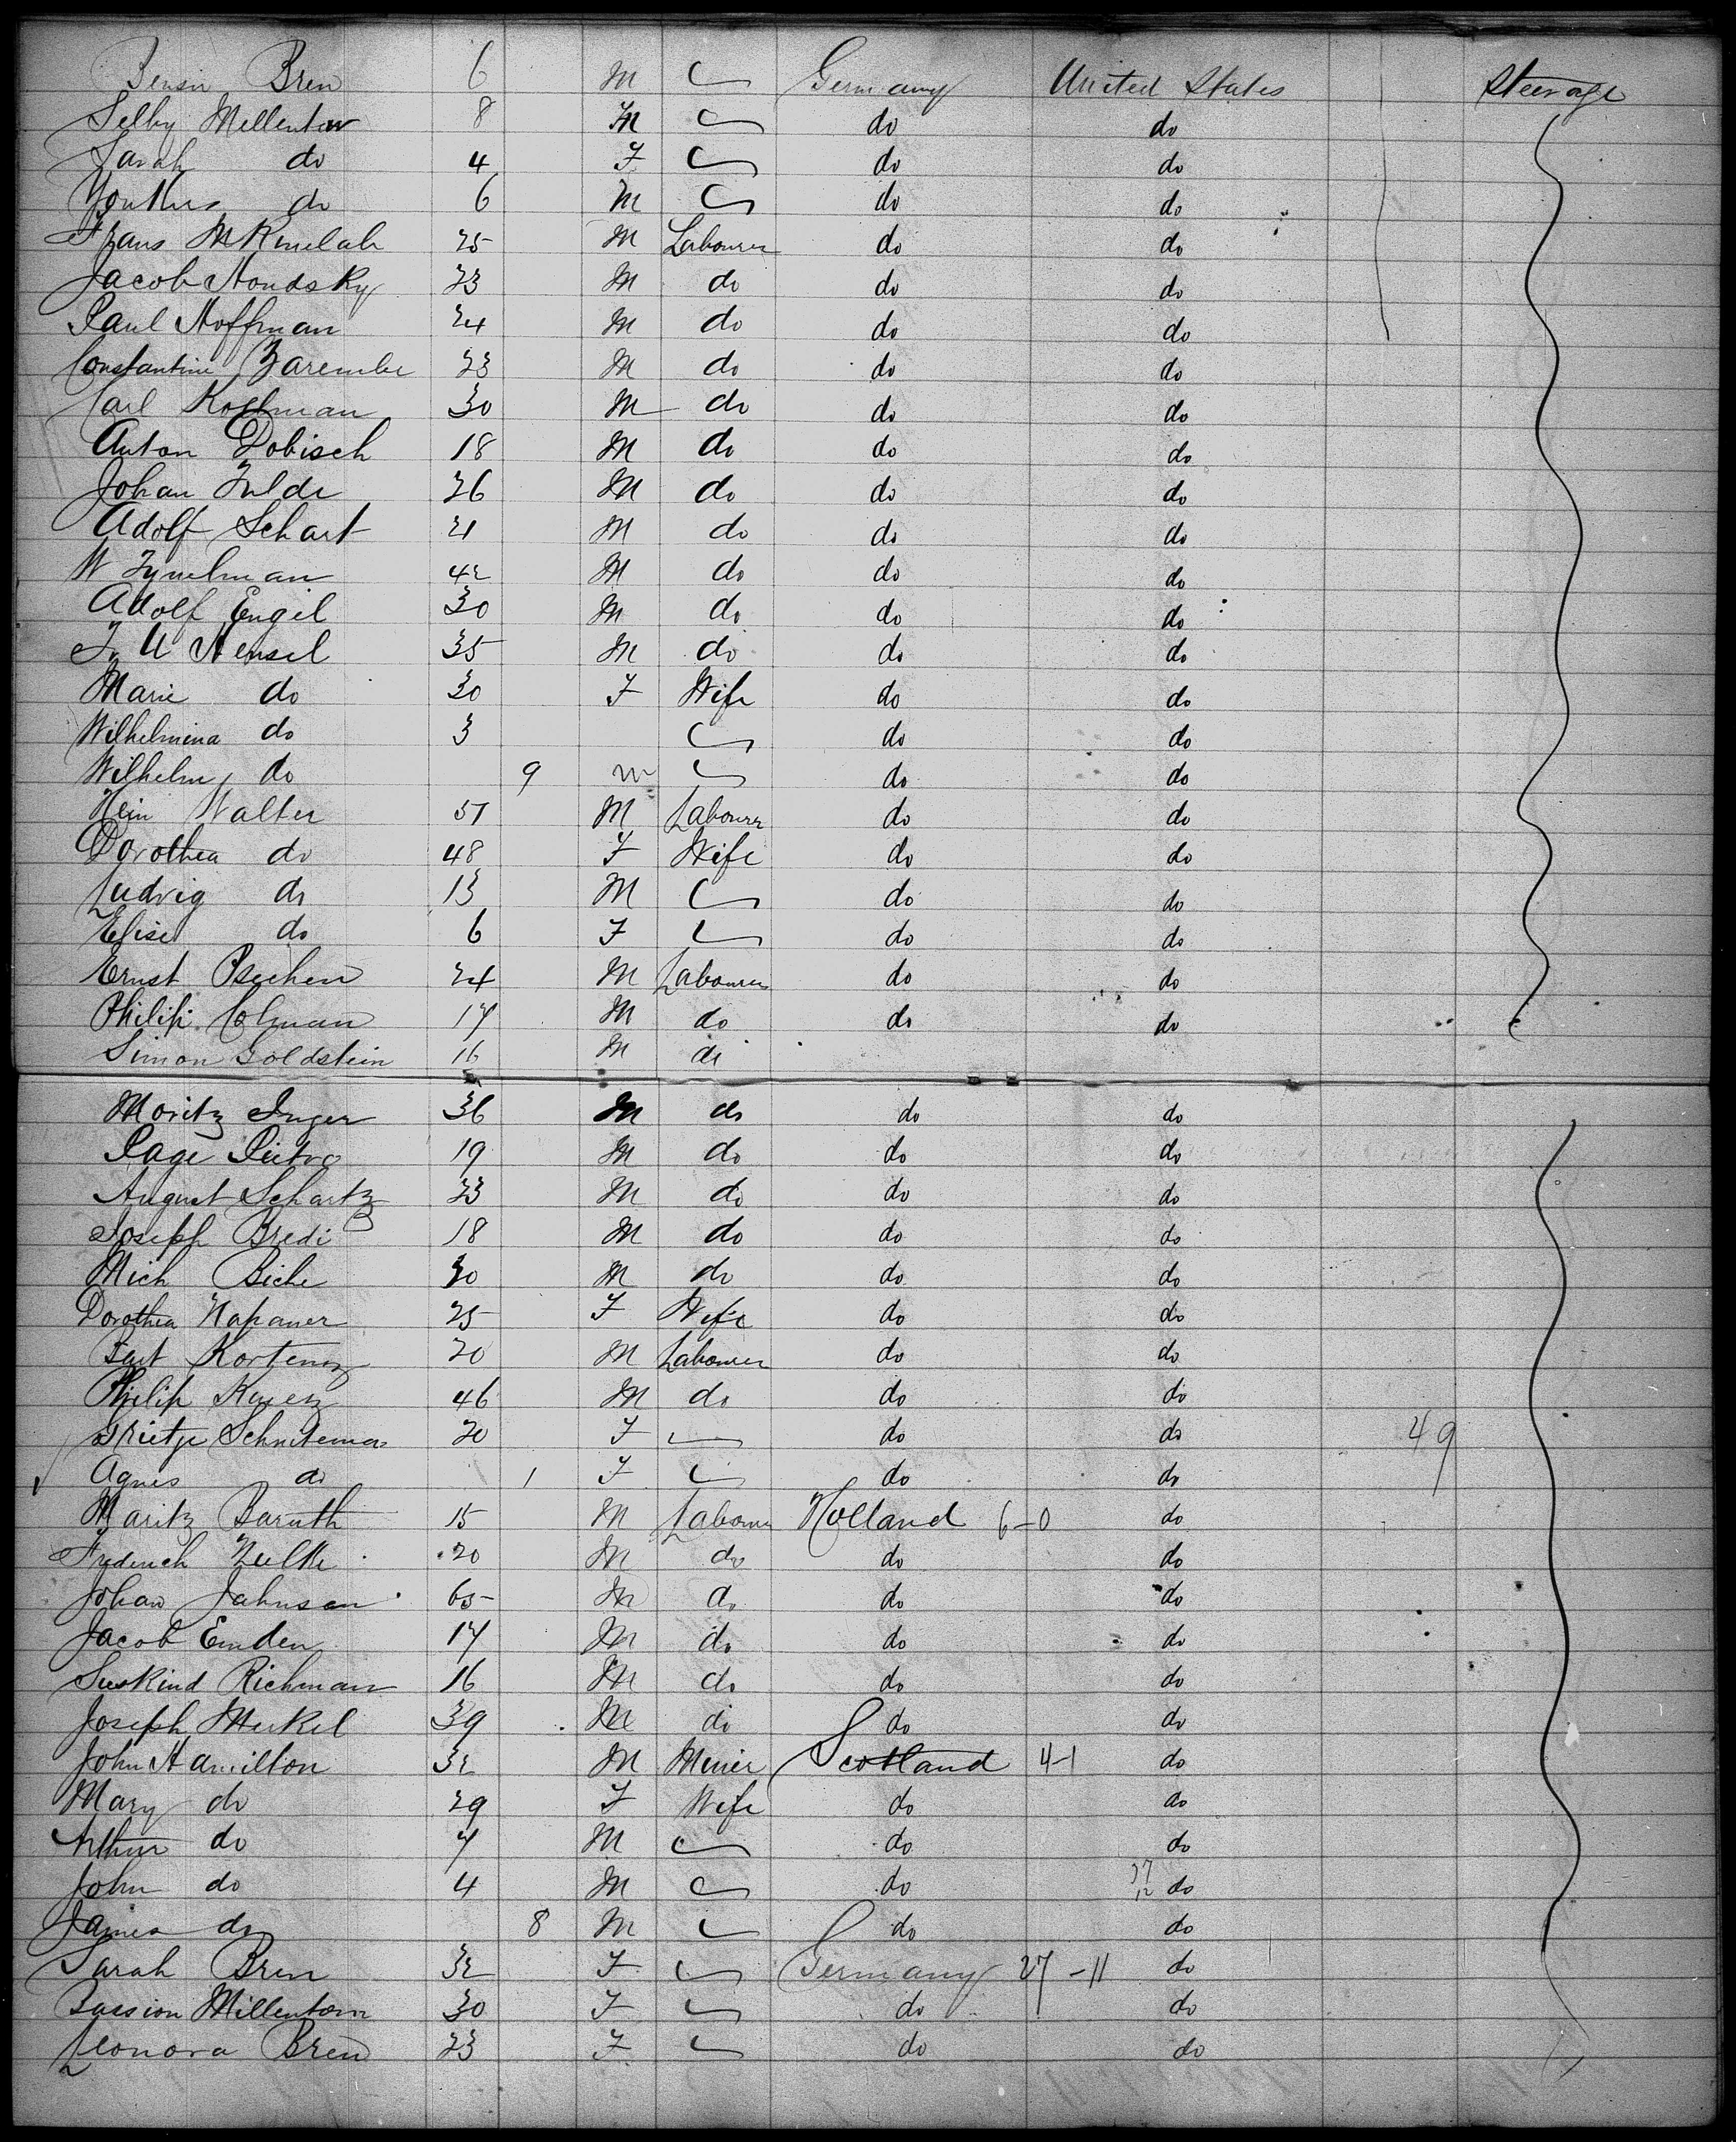 Bensin Bren 6 M Germany United States Steerage
Selby Mellentow 8 M do do
Sarah do 4 F do do
do 6 M do do
Frans 25 M Labourer do do
Jacob Nondsky 23 M do do do
Paul Hoffman 24 M do do do
Constantine Zarembe 23 M do do do
Carl Kollman 30 M do do do
Anton Dobisch 18 M do do do
Johan Fulde 26 M do do do
Adolf Schart 21 M do do do
W Zynelman 42 M do do do
Adolf Engil 30 M do do do
F. W Hensel 35 M do do do
Marie do 30 F Wife do do
Wilhelmina do 3 do do
Wilhelm do 9 m do do
Hein Walter 51 M Labourer do do
Dorothea do 48 F Wife do do
Ludvig do 13 M do do
Elise do 6 F do do
Ernst 24 M Labourer do do
Philip Colman 17 M do do do
Simon Goldstein 16 M do
Moritz Inger 36 M do do do
Page Pietro 19 M do do do
August Schartz 23 M do do do
Joseph Bredi 18 M do do do
Mich Biche 30 M do do do
Dorothea Napaner 25 F Wife do do
Kortenz 20 M Labourer do do
Philip 46 M do do do
Grietje Schuitema 20 F do do 49
Agnes do 1 F do do
Maritz Baruth 15 M Labourer Holland 6-0 do
Frederich Zulke 20 M do do do
Johan Jahnsen 65 M do do do
Jacob Emden 17 M do do do
Suskind Richman 16 M do do do
Joseph Merkel 39 M do do do
John Hamilton 32 M Miner Scotland 4-1 do
Mary do 29 F Wife do do
Arthur do 7 M do do
John do 4 M do do
James do 8 M do do
Sarah Bren 32 F Germany 27-11 do
Bassion Millentown 30 F do do
Leonora Bren 23 F do do